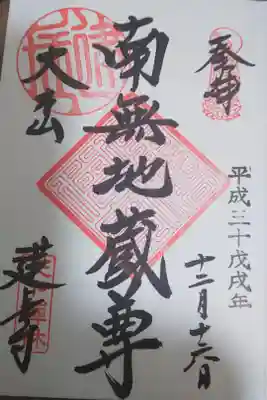 奉拝
平成三十戊戌年
十二月十六日
南無地蔵尊
建長寺